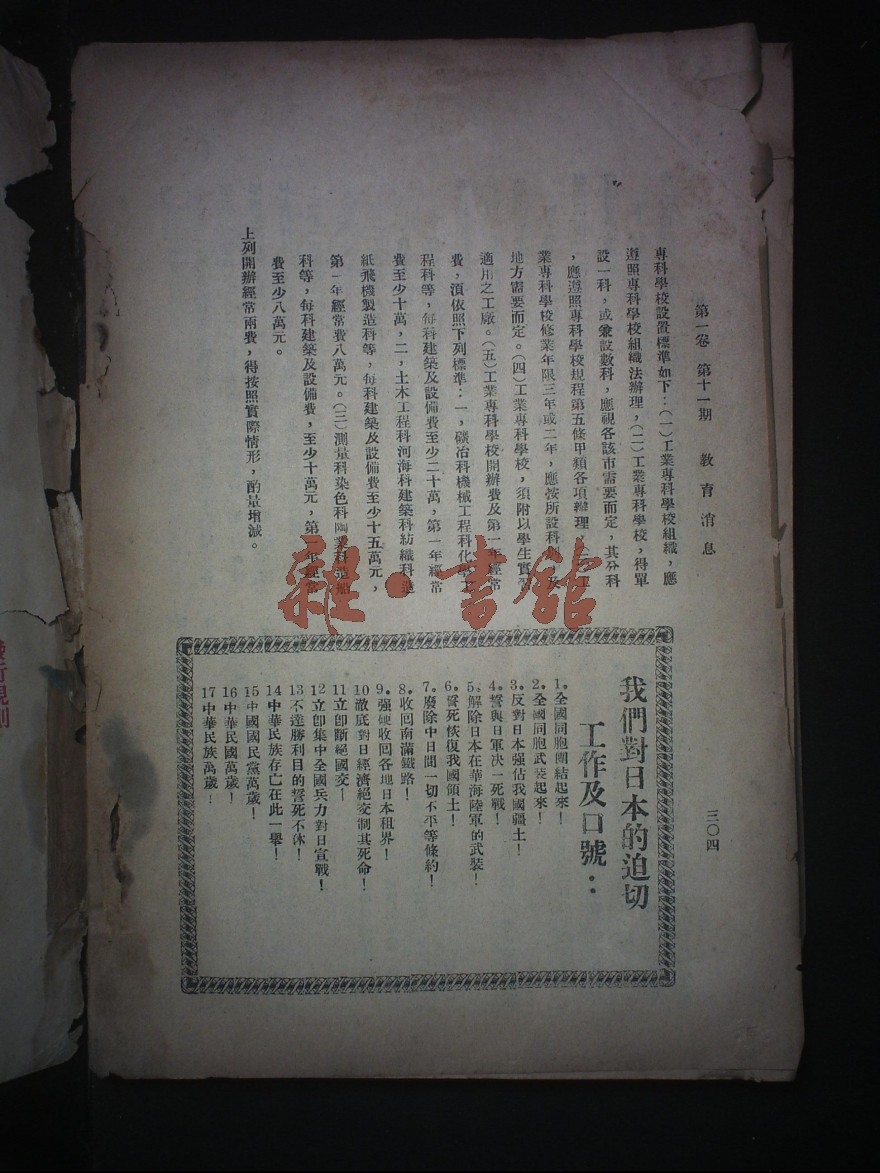 第一卷 第十一期 教育消息 三〇四
專科學校設置標準如下：（一）工業專科學校組織，應
遵照專科學校組織法辦理，（二）工業專科學校，得單
設一科，或兼設數科，應視各該市需要而定，其分科
，應遵照專科學校規程第五條甲類各項辦理，（三）工
業專科學校修業年限三年或二年，應按所設科別及
地方需要而定。（四）工業專科學校，須附以學生實習
適用之工廠。（五）工業專科學校開辦費及第一年經常
費，須依照下列標準：一，礦冶科機械工程科化學工
程科等，每科建築及設備費至少二十萬，第一年經常
費至少十萬，二，土木工程科河海科建築科紡織科造
紙飛機製造科等，每科建築及設備費至少十五萬元，
第一年經常費八萬元。（三）測量科染色科陶業科造船
科等，每科建築及設備費，至少十萬元，第一年經常
費至少八萬元。
上列開辦經常兩費，得按照實際情形，酌量增減。
我們對日本的迫切
工作及口號：
1。全國同胞團結起來！
2。全國同胞武裝起來！
3。反對日本强佔我國疆土！
4。誓與日軍決一死戰！
5。解除日本在華海陸軍的武裝！
6。誓死恢復我國領土！
7。廢除中日間一切不平等條約！
8。收囘南滿鐵路！
9。强硬收囘各地日本租界！
10徹底對日經濟絕交制其死命！
11立卽斷絕國交！
12立卽集中全國兵力對日宣戰！
13不達勝利目的誓死不休！
14中華民族存亡在此一舉！
15中國國民黨萬歲！
16中華民國萬歲！
17中華民族萬歲！
雜·書館
發行規則